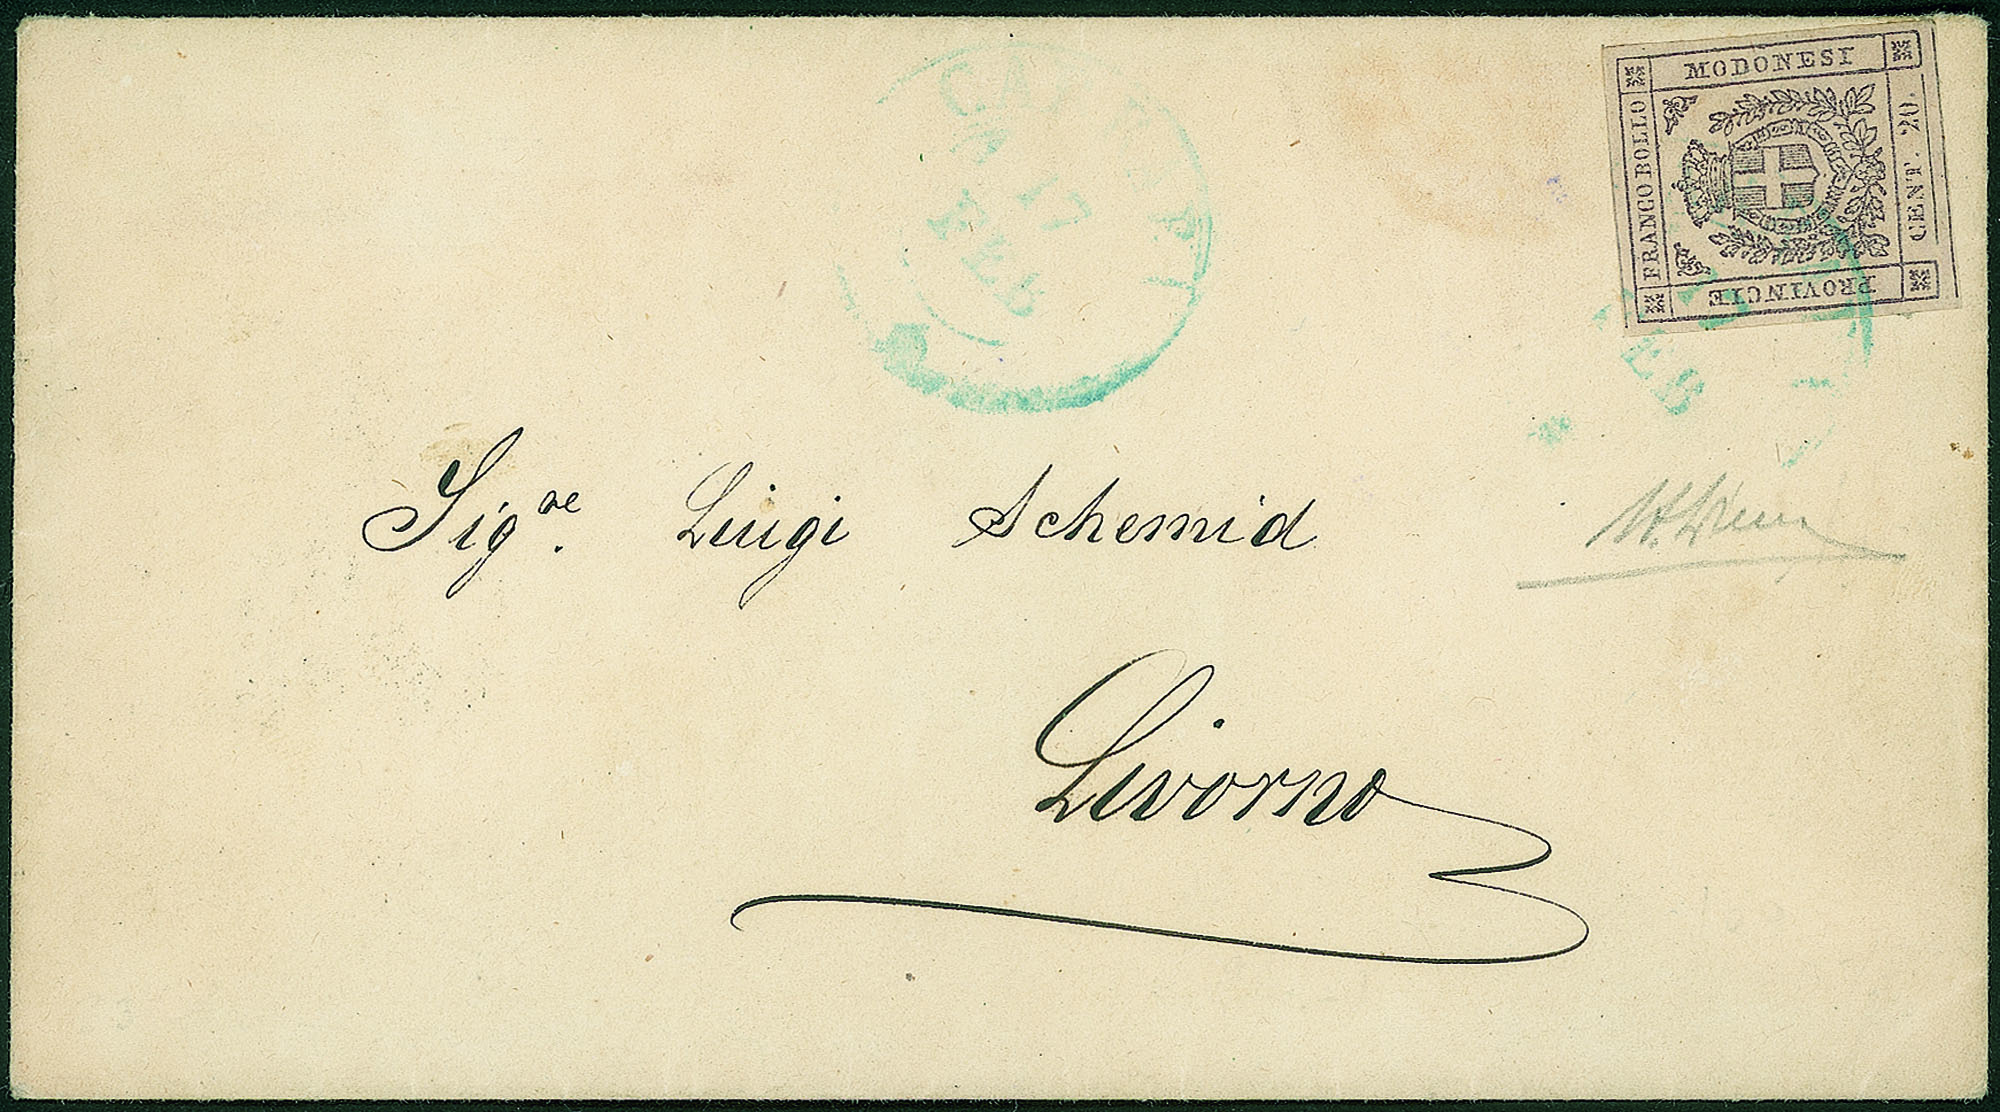 MODONESI
FRANCO BOLLO
CENT. 20.
PROVINCIE
17
FEB
EB
Sig.re Luigi Schemid
Livorno